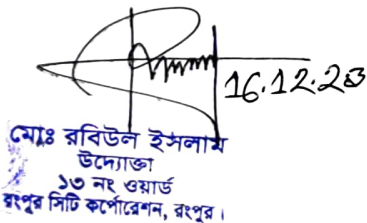 16.12.23
মোঃ রবিউল ইসলাম
উদ্যোক্তা
১৩ নং ওয়ার্ড
রংপুর সিটি কর্পোরেশন, রংপুর।